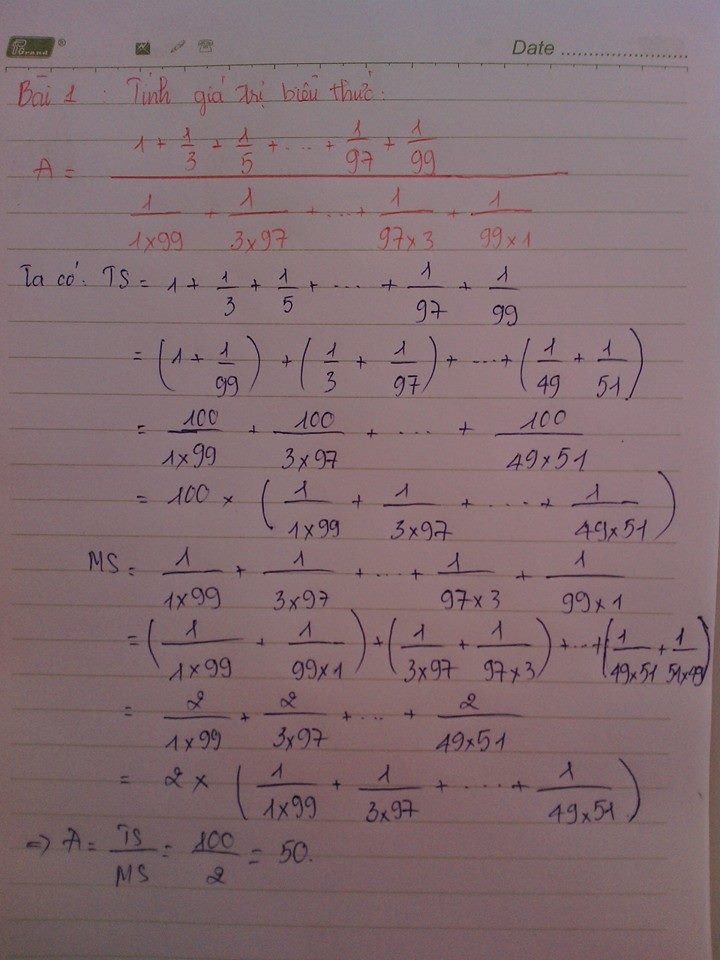 Grand ®
Date ........................
Bài 1 : Tính giá trị biểu thức:
A = (1 + 1/3 + 1/5 + ... + 1/97 + 1/99) / (1/(1x99) + 1/(3x97) + ... + 1/(97x3) + 1/(99x1))
Ta có: TS = 1 + 1/3 + 1/5 + ... + 1/97 + 1/99
= (1 + 1/99) + (1/3 + 1/97) + ... + (1/49 + 1/51)
= 100/(1x99) + 100/(3x97) + ... + 100/(49x51)
= 100 x (1/(1x99) + 1/(3x97) + ... + 1/(49x51))
MS = 1/(1x99) + 1/(3x97) + ... + 1/(97x3) + 1/(99x1)
= (1/(1x99) + 1/(99x1)) + (1/(3x97) + 1/(97x3)) + ... + (1/(49x51) + 1/(51x49))
= 2/(1x99) + 2/(3x97) + ... + 2/(49x51)
= 2 x (1/(1x99) + 1/(3x97) + ... + 1/(49x51))
=> A = TS/MS = 100/2 = 50.